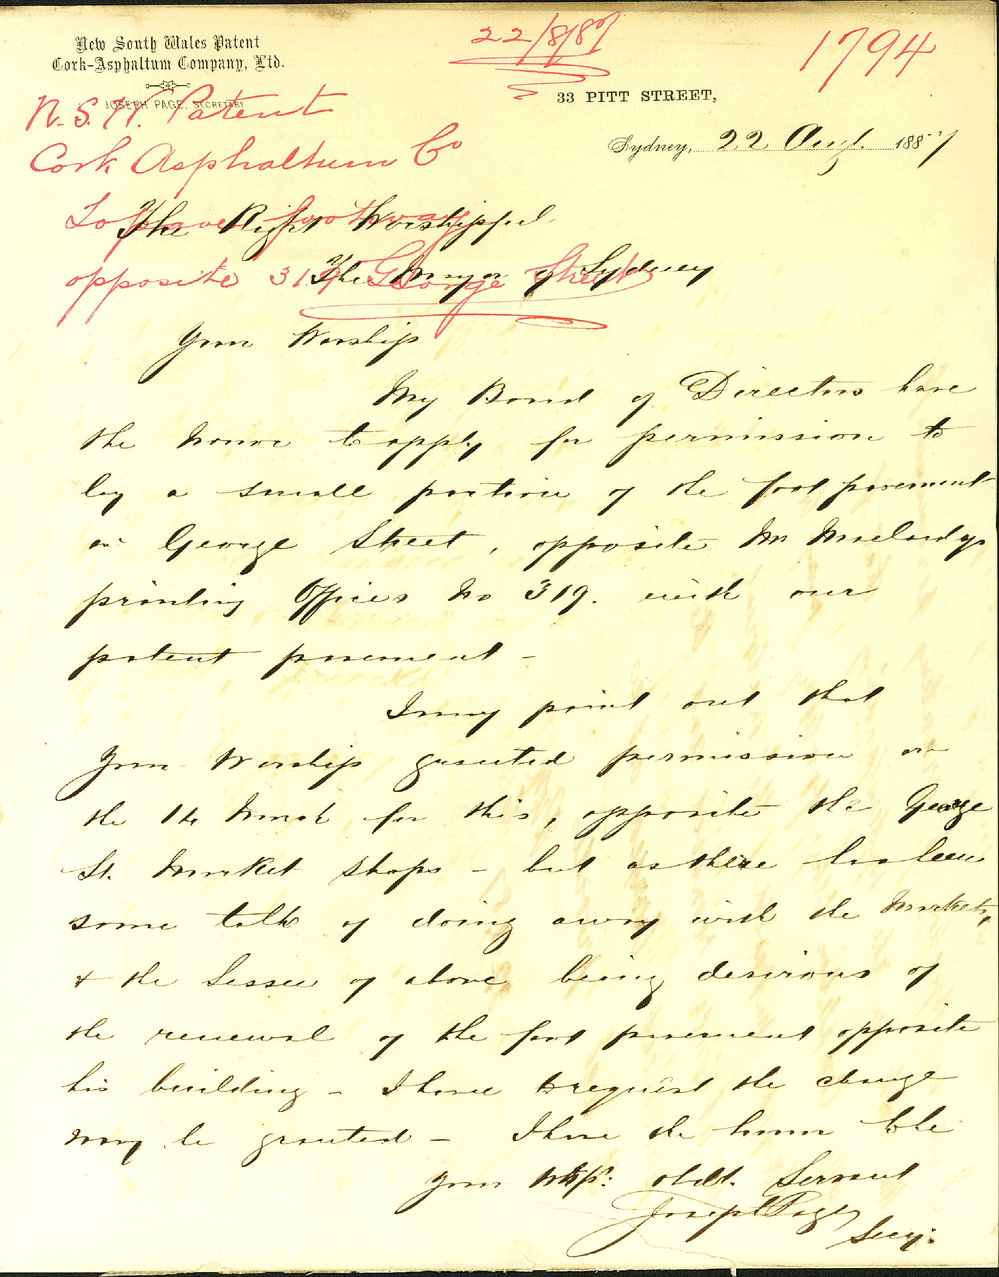 New South Wales Patent
Cork-Asphaltum Company, Ltd.
JOSEPH PAGE, SECRETARY
22/8/87
1794
33 PITT STREET,
Sydney, 22 Aug. 1887
N.S.W. Patent
Cork Asphaltum Co
To pave footway
opposite 319 George Street
The Right Worshipful
The Mayor of Sydney
Your Worship
My Board of Directors have
the honor to apply for permission to
lay a small portion of the foot pavement
in George Street, opposite Mr
printing Offices No 319. with our
patent pavement -
I may point out that
Your Worship granted permission on
the 14 for this, opposite the George
St. Market shops - but as there has been
some talk of doing away with the Markets,
& the Lessee of above being desirous of
the renewal of the foot pavement opposite
his building - I have to request the change
may be granted - I have the honor to be
Your Wsp: obdt. Servant
Joseph Page
Secy: